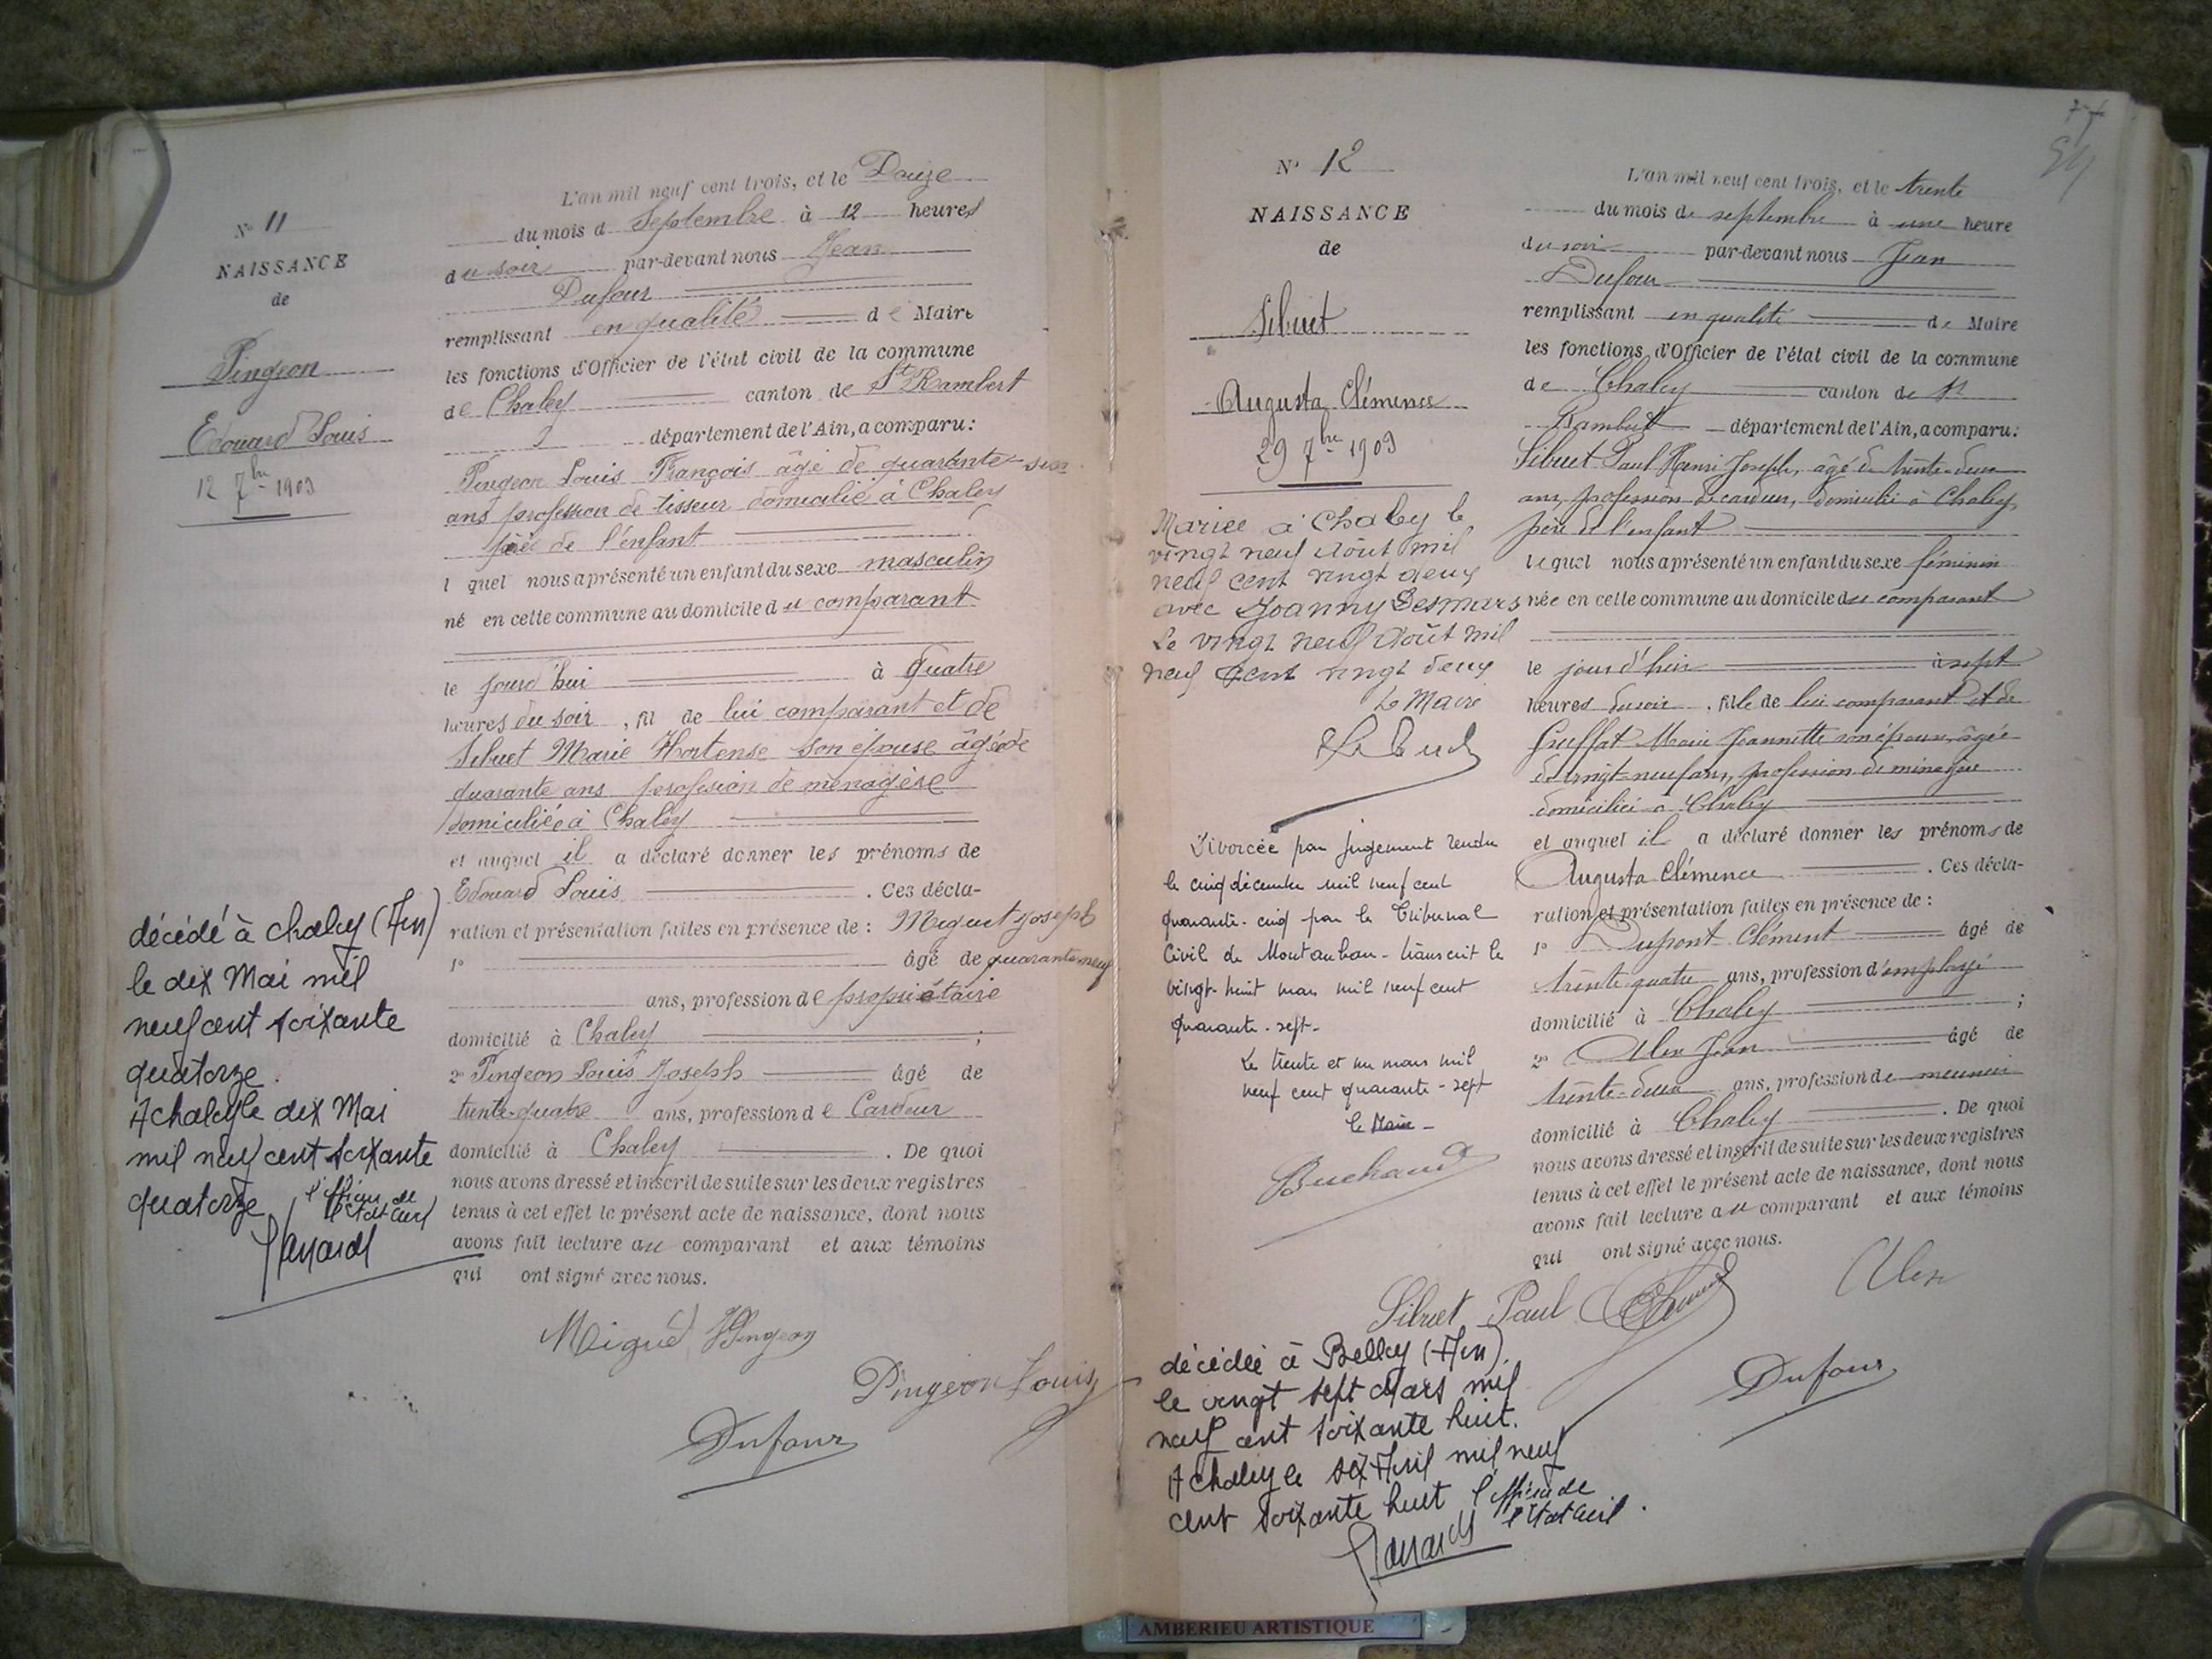 N° 11
NAISSANCE
de
Pingeon
Edouard Louis
12 7bre 1903
L'an mil neuf cent trois, et le Douze
du mois d Septembre à 12 heures
du soir par-devant nous Jean
Dufour
remplissant en qualité de Maire
les fonctions d'Officier de l'état civil de la commune
de Chaley canton de St Rambert
département de l'Ain, a comparu:
Pingeon Louis François âgé de quarante
ans profession de tisseur domicilié à Chaley
père de l'enfant
l quel nous a présenté un enfant du sexe masculin
né en cette commune au domicile du comparant
le jourd'hui à quatre
heures du soir, fil de lui comparant et de
Sibuet Marie Hortense son épouse âgée de
quarante ans profession de ménagère
domiciliée à Chaley
et auquel il a déclaré donner les prénoms de
Edouard Louis. Ces décla-
ration et présentation faites en présence de: Miguet Joseph
1° âgé de quarante neuf
ans, profession de propriétaire
domicilié à Chaley;
2° Pingeon Louis Joseph âgé de
trente-quatre ans, profession de Cardeur
domicilié à Chaley. De quoi
nous avons dressé et inscrit de suite sur les deux registres
tenus à cet effet le présent acte de naissance, dont nous
avons fait lecture au comparant et aux témoins
qui ont signé avec nous.
Pingeon
Pingeon Louis
Dufour
décédé à chaley (Ain)
le dix Mai mil
neuf cent soixante
quatorze.
A chaley le dix Mai
mil neuf cent soixante
quatorze l'officier de
l'état civil
N° 12
NAISSANCE
de
Sibuet
Augusta Clémence
29 7bre 1903
Mariée à Chaley le
vingt neuf Août mil
neuf cent vingt deux
avec Joanny Desmars
Le vingt neuf Août mil
neuf cent vingt deux
Le Maire
Divorcée par jugement rendu
le cinq décembre mil neuf cent
quarante-cinq par le Tribunal
Civil de Montauban - transcrit le
vingt-huit mars mil neuf cent
quarante-sept-
Le trente et un mars mil
neuf cent quarante-sept
le Maire -
L'an mil neuf cent trois, et le trente
du mois de septembre à une heure
du soir par-devant nous Jean
Dufour
remplissant en qualité de Maire
les fonctions d'Officier de l'état civil de la commune
de Chaley canton de St
Rambert département de l'Ain, a comparu:
Sibuet Paul Henri Joseph, âgé de trente-deux
ans, profession de cardeur, domicilié à Chaley
père de l'enfant
lequel nous a présenté un enfant du sexe féminin
née en cette commune au domicile du comparant
le jourd'hui à sept
heures du soir, fille de lui comparant et de
Gruffat Marie Jeannette son épouse, âgée
de vingt-neuf ans, profession de ménagère
domiciliée à Chaley
et auquel il a déclaré donner les prénoms de
Augusta Clémence. Ces décla-
ration et présentation faites en présence de:
1° Dupont Clément âgé de
trente quatre ans, profession d'employé
domicilié à Chaley;
2° Alex Jean âgé de
trente-deux ans, profession de meunier
domicilié à Chaley. De quoi
nous avons dressé et inscrit de suite sur les deux registres
tenus à cet effet le présent acte de naissance, dont nous
avons fait lecture au comparant et aux témoins
qui ont signé avec nous.
Sibuet Paul
Alex
Dufour
décédée à Belley (Ain).
le vingt sept Mars mil
neuf cent soixante huit.
A chaley le six Avril mil neuf
cent soixante huit l'officier de
l'état civil.
AMBERIEU ARTISTIQUE